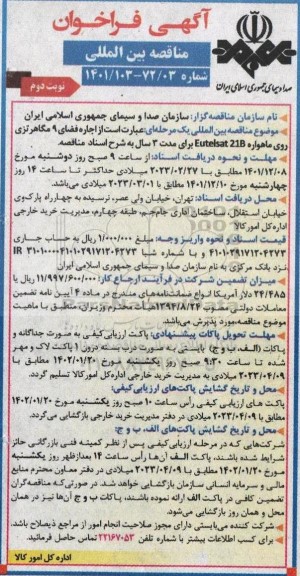 آگهی فراخوان
مناقصه بین المللی
شماره ۱۴۰۱/۱۰۳-۷۲/۰۳
نوبت دوم
صدا و سیمای جمهوری اسلامی ایران
نام سازمان مناقصه‌گزار: سازمان صدا و سیمای جمهوری اسلامی ایران
موضوع مناقصه بین‌المللی یک مرحله‌ای: عبارت است از اجاره فضای ۹ مگاهرتزی
روی ماهواره Eutelsat 21B برای مدت ۳ سال به شرح اسناد مناقصه.
مهلت و نحوه دریافت اسناد: از ساعت ۹ صبح روز دوشنبه مورخ
۱۴۰۱/۱۲/۰۸ مطابق با ۲۰۲۳/۰۲/۲۷ میلادی حداکثر تا ساعت ۱۴ روز
چهارشنبه مورخ ۱۴۰۱/۱۲/۱۰ مطابق با ۲۰۲۳/۰۳/۰۱ میلادی می‌باشد.
محل دریافت اسناد: تهران، خیابان ولی عصر، نرسیده به چهارراه پارک‌وی
خیابان استقلال، ساختمان اداری جام‌جم، طبقه چهارم، مدیریت خرید خارجی
اداره کل امور کالا
قیمت اسناد و نحوه واریز وجه: مبلغ ۱/۰۰۰/۰۰۰ ریال به حساب جاری
نزد بانک مرکزی به نام سازمان صدا و سیمای جمهوری اسلامی ایران
میزان تضمین شرکت در فرآیند ارجاع کار: ۱۱/۹۹۷/۶۰۰/۰۰۰ ریال یا
۲۴/۴۸۵ دلار آمریکا انواع ضمانت‌نامه‌های مندرج در ماده ۴ آیین نامه تضمین
معاملات دولتی مصوب ۱۳۹۴/۸/۲۴ هیات محترم وزیران، منطبق با ماهیت
موضوع مناقصه مورد پذیرش می‌باشد.
مهلت تحویل پاکات پیشنهادی: پاکت ارزیابی کیفی به صورت جداگانه و
پاکات (الف، ب و ج)، بایستی به صورت درب بسته درون ۱ پاکت لاک و مهر
شده تا ساعت ۹:۳۰ صبح روز یکشنبه مورخ ۱۴۰۲/۰۱/۲۰ مطابق با
۲۰۲۳/۰۴/۰۹ میلادی به مدیریت خرید خارجی اداره‌کل امور کالا تسلیم گردد.
محل و تاریخ گشایش پاکت‌های ارزیابی کیفی:
پاکت های ارزیابی کیفی رأس ساعت ۱۰ صبح روز یکشنبه مورخ ۱۴۰۲/۰۱/۲۰
مطابق با ۲۰۲۳/۰۴/۰۹ میلادی در دفتر مدیریت خرید خارجی بازگشایی می‌گردد.
محل و تاریخ گشایش پاکت‌های الف، ب و ج:
شرکت‌هایی که در مرحله ارزیابی کیفی پس از نظر کمیته فنی بازرگانی حائز
شرایط شده باشند، پاکت الف آن‌ها رأس ساعت ۱۴ بعدازظهر روز یکشنبه
مورخ ۱۴۰۲/۰۱/۲۰ مطابق با ۲۰۲۳/۰۴/۰۹ میلادی در دفتر معاون محترم منابع
مالی و سرمایه انسانی سازمان بازگشایی خواهد شد. در صورتی که مناقصه‌گران
تضمین کافی در پاکت الف ارائه نموده باشند، پاکات ب و ج آن‌ها نیز در همان
محل و همان روز بازگشایی می‌شود.
شرکت کننده می‌بایستی دارای مجوز صلاحیت انجام امور از مراجع ذیصلاح باشد.
برای کسب اطلاعات بیشتر با شماره تلفن ۲۲۱۶۷۰۵۳ تماس حاصل فرمائید.
اداره کل امور کالا